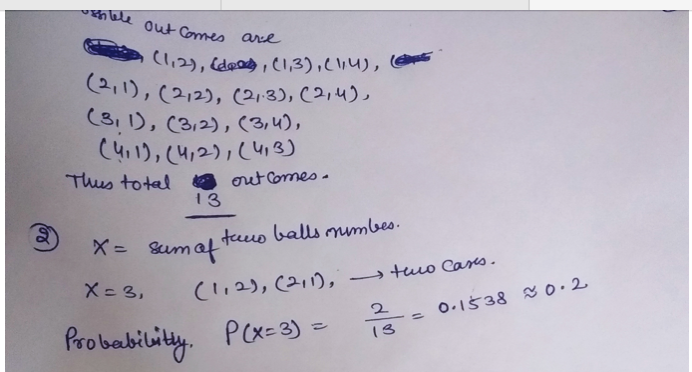 out comes are
(1,2), (1,3), (1,4),
(2,1), (2,2), (2,3), (2,4),
(3,1), (3,2), (3,4),
(4,1), (4,2), (4,3)
Thus total out comes.
13
② X = sum of two balls number.
X = 3, (1,2), (2,1), → two cases.
Probability. P(X=3) = 2/13 = 0.1538 ≈ 0.2